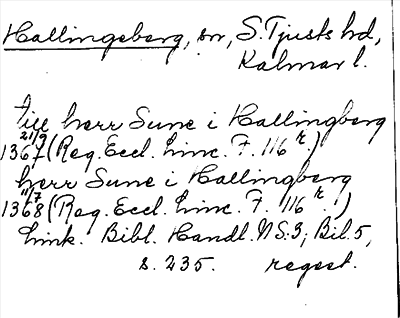 Hallingeberg, sn, S. Tjusts hd,
Kalmar l.
till herr Sune i Hallingberg
21/9
1367 (Reg. Eccl. Linc. F. 116 r.)
herr Sune i Hallingberg
11/7
1368 (Reg. Eccl. Linc. F. 116 r.)
Link. Bibl. Handl. NS:3, Bil. 5,
s. 235. regest.